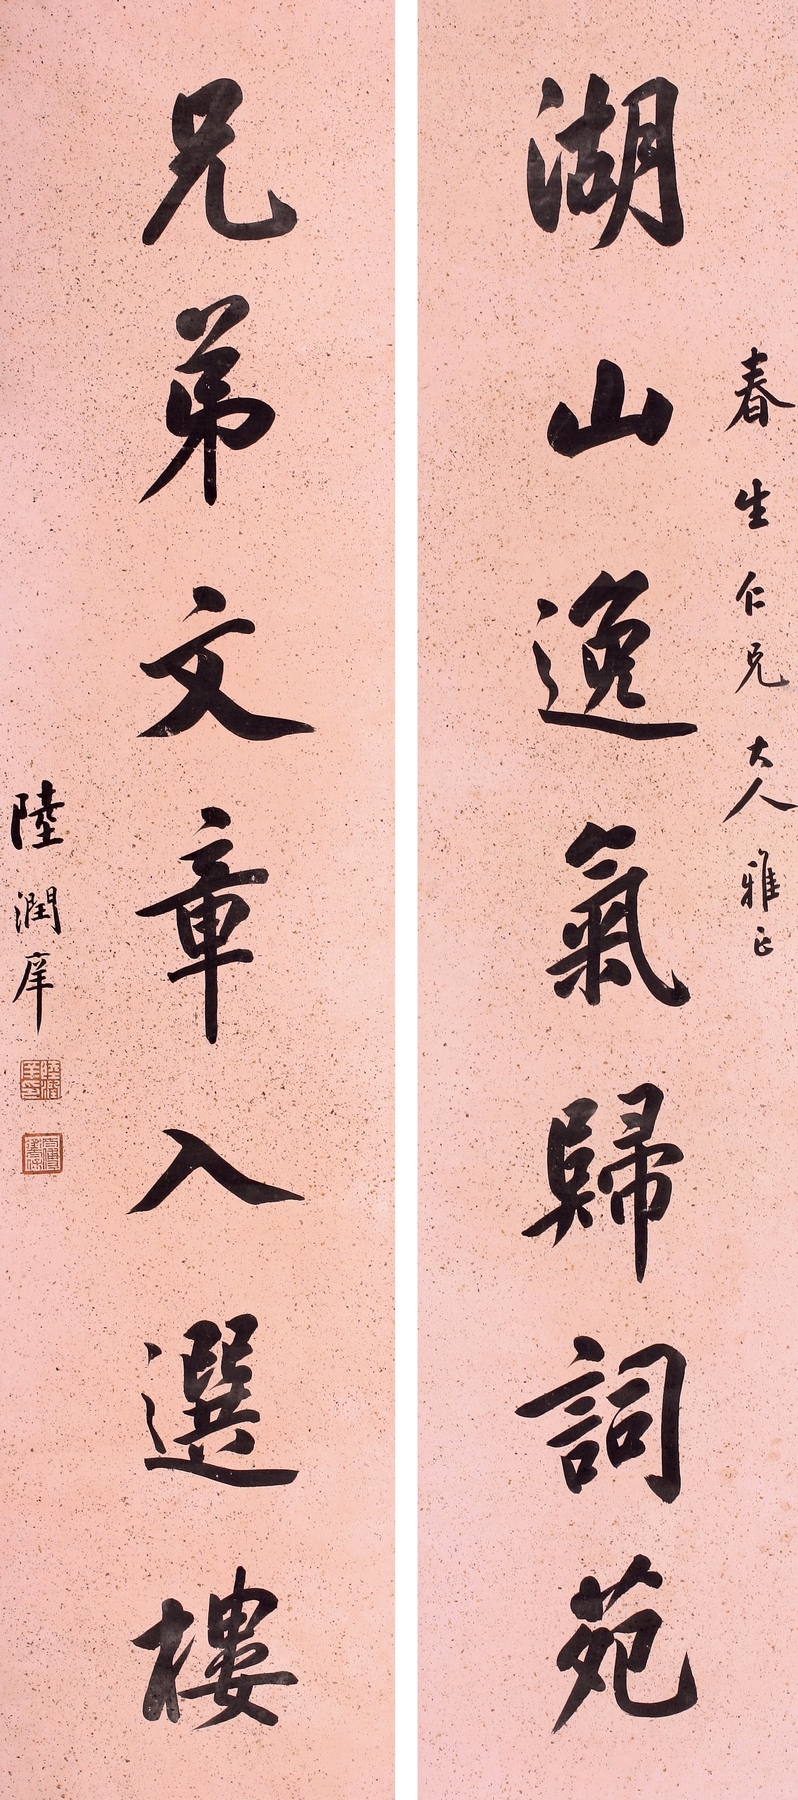 春生仁兄大人雅正
湖山逸氣歸詞苑
兄弟文章入選樓
陸潤庠